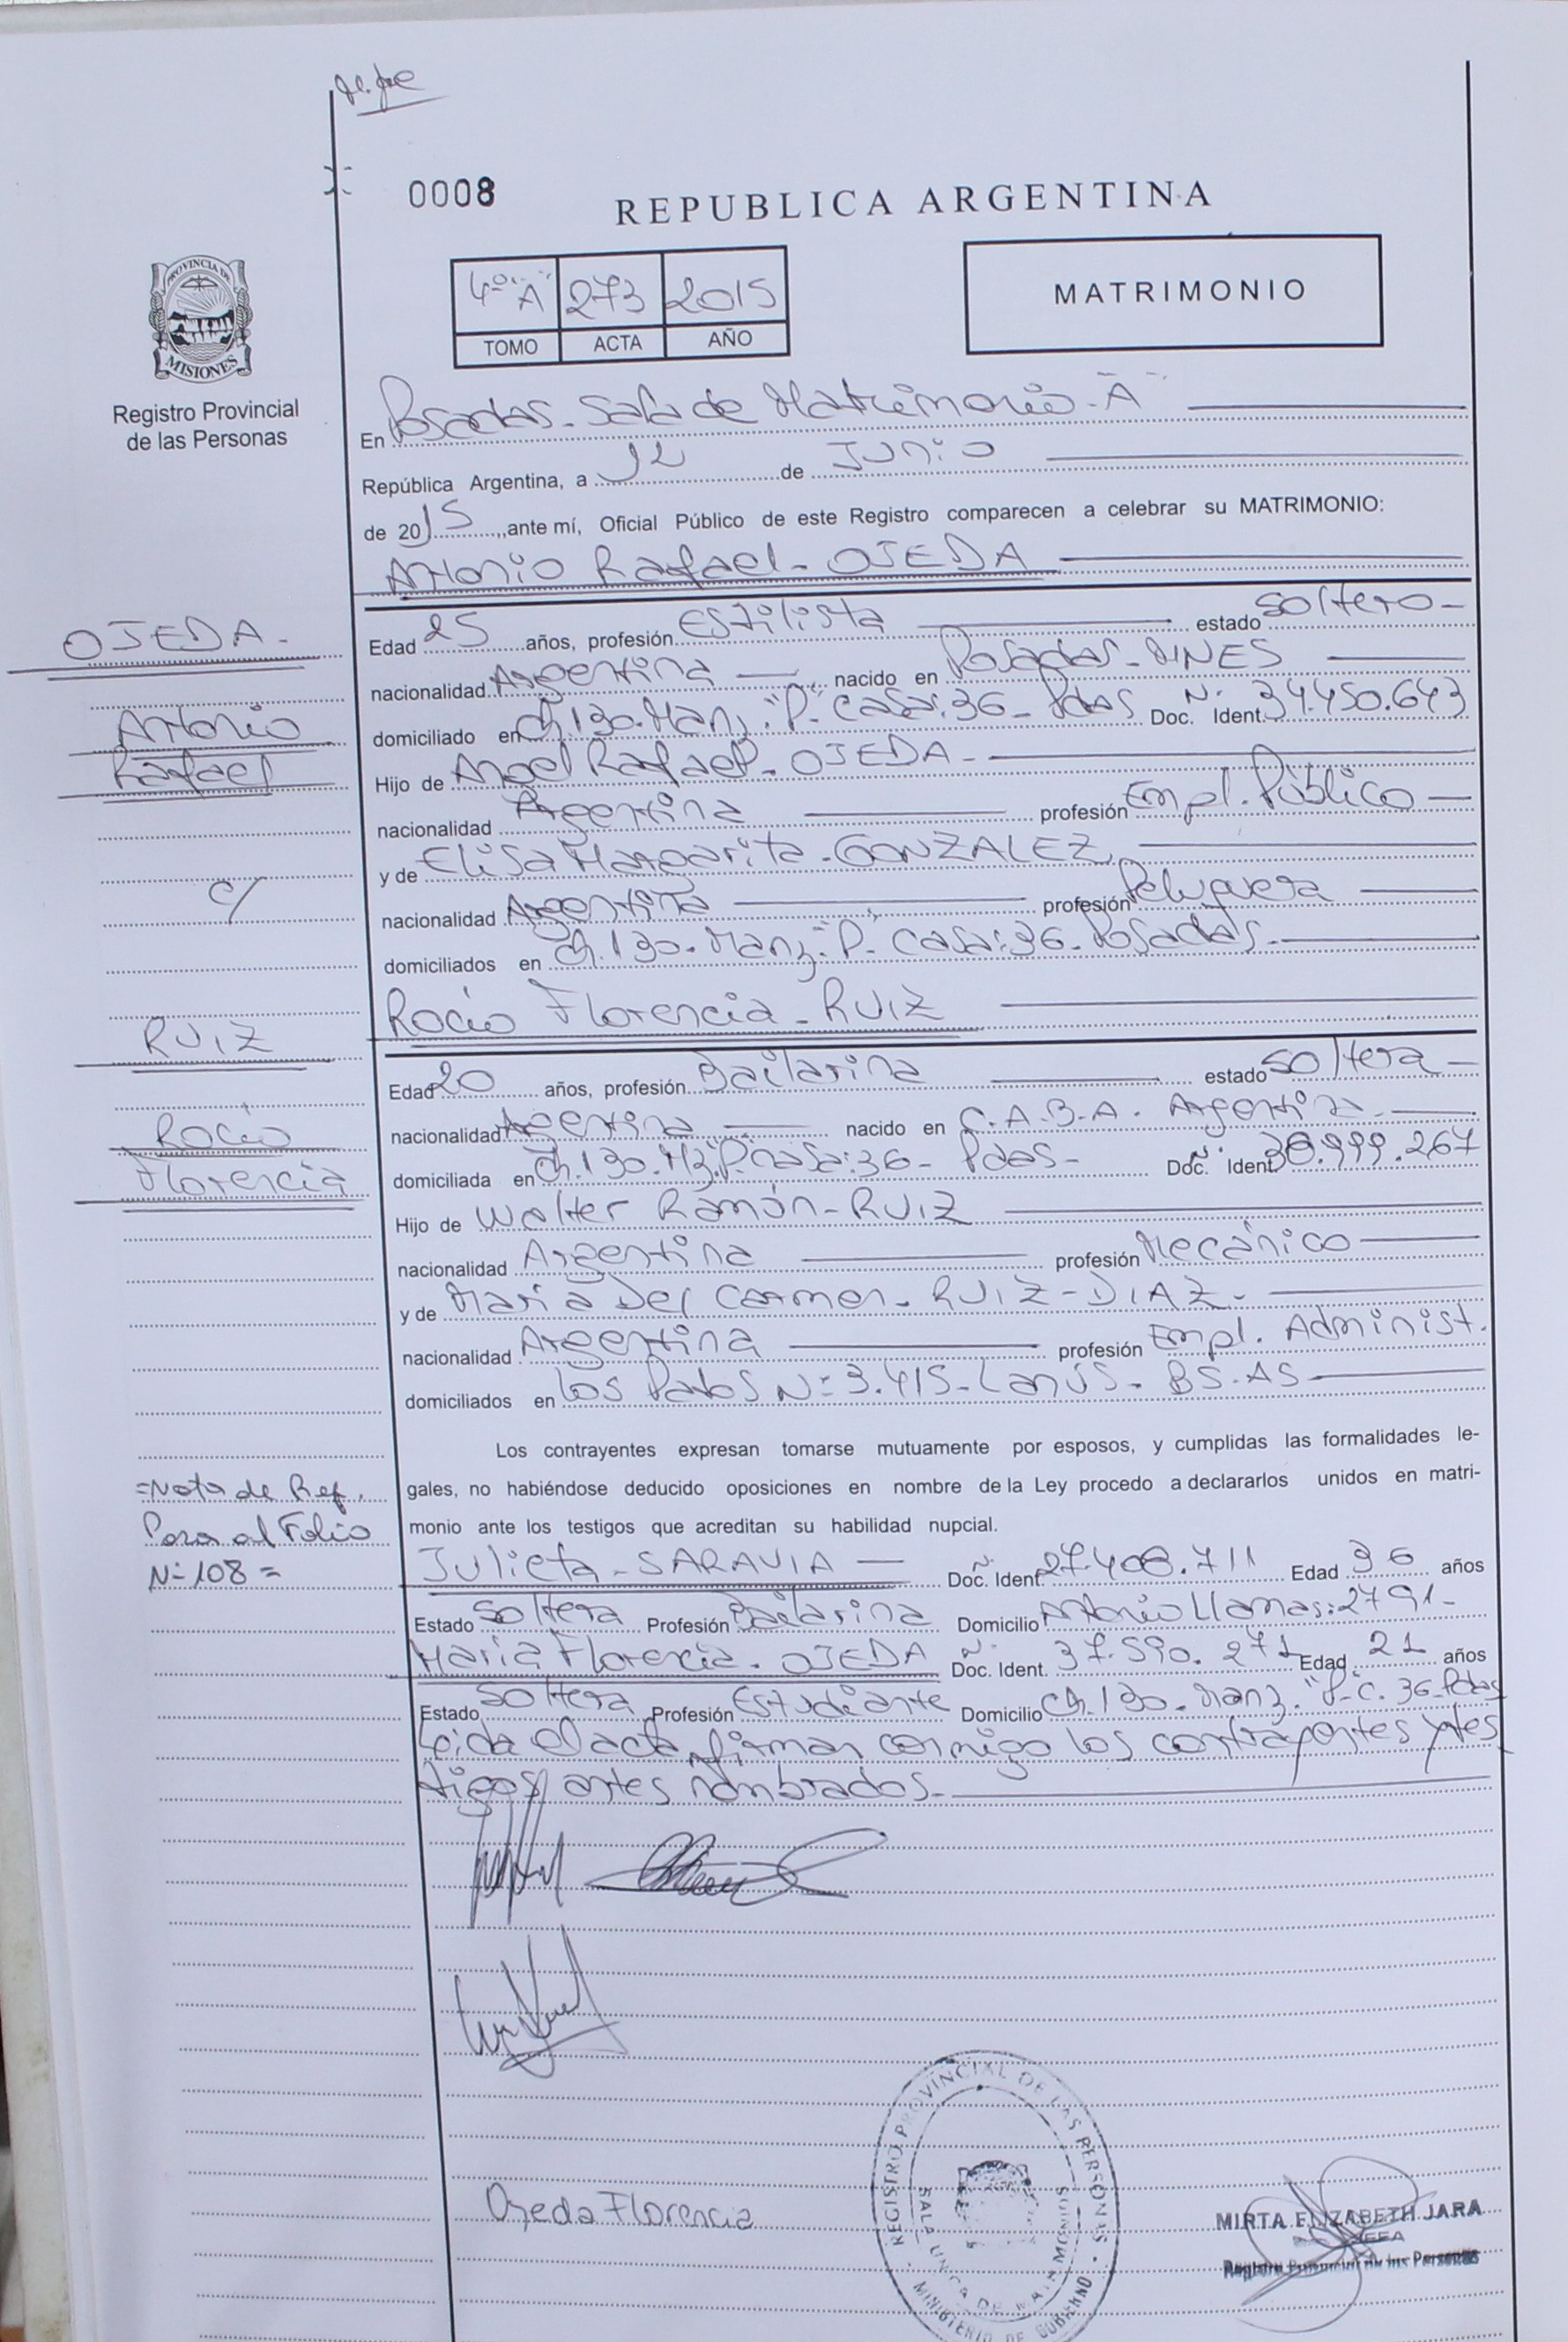 0008
REPUBLICA ARGENTINA
PROVINCIA DE
MISIONES
Registro Provincial
de las Personas
4º "A" 273 2015
TOMO ACTA AÑO
MATRIMONIO
En Posadas - Sala de Matrimonio - "A"
República Argentina, a 12 de Junio
de 2015, ante mí, Oficial Público de este Registro comparecen a celebrar su MATRIMONIO:
Antonio Rafael - OJEDA
OJEDA -
Antonio
Rafael
c/
RUIZ
Rocío
Florencia
Edad 25 años, profesión Estilista estado Soltero -
nacionalidad Argentina nacido en Posadas - MNES
domiciliado en Ch. 130 - Manz: "P" - Casa: 36 - Pdas Doc. Ident. Nº 34.450.643
Hijo de Angel Rafael - OJEDA -
nacionalidad Argentina profesión Empl. Público
y de Elisa Margarita - GONZALEZ
nacionalidad Argentina profesión Peluquera
domiciliados en Ch. 130 - Manz: "P" - Casa: 36 - Posadas -
Rocío Florencia - RUIZ
Edad 20 años, profesión Bailarina estado Soltera -
nacionalidad Argentina nacido en C.A.B.A. Argentina -
domiciliada en Ch. 130 - Mz. "P" - Casa: 36 - Pdas - Doc. Ident. Nº 38.999.267
Hijo de Walter Ramón - RUIZ
nacionalidad Argentina profesión Mecánico
y de María Del Carmen - RUIZ - DIAZ -
nacionalidad Argentina profesión Empl. Administ.
domiciliados en Los Patos Nº 3.415 - Lanús - BS. AS
Los contrayentes expresan tomarse mutuamente por esposos, y cumplidas las formalidades le-
gales, no habiéndose deducido oposiciones en nombre de la Ley procedo a declararlos unidos en matri-
monio ante los testigos que acreditan su habilidad nupcial.
=Nota de Ref.
Pasa al Folio
Nº 108 =
Julieta - SARAVIA Doc. Ident. Nº 27.408.711 Edad 36 años
Estado Soltera Profesión Bailarina Domicilio Antonio Llamas: 2791 -
María Florencia - OJEDA Doc. Ident. Nº 37.590.271 Edad 21 años
Estado Soltera Profesión Estudiante Domicilio Ch. 130 - Manz. "P" - C. 36 - Pdas
Leída el acta, firman conmigo los contrayentes y tes
tigos antes nombrados -
Ojeda Florencia
REGISTRO PROVINCIAL DE LAS PERSONAS
SALA UNICA DE MATRIMONIOS
MINISTERIO DE GOBIERNO
MIRTA ELIZABETH JARA
JEFA
Registro Provincial de las Personas